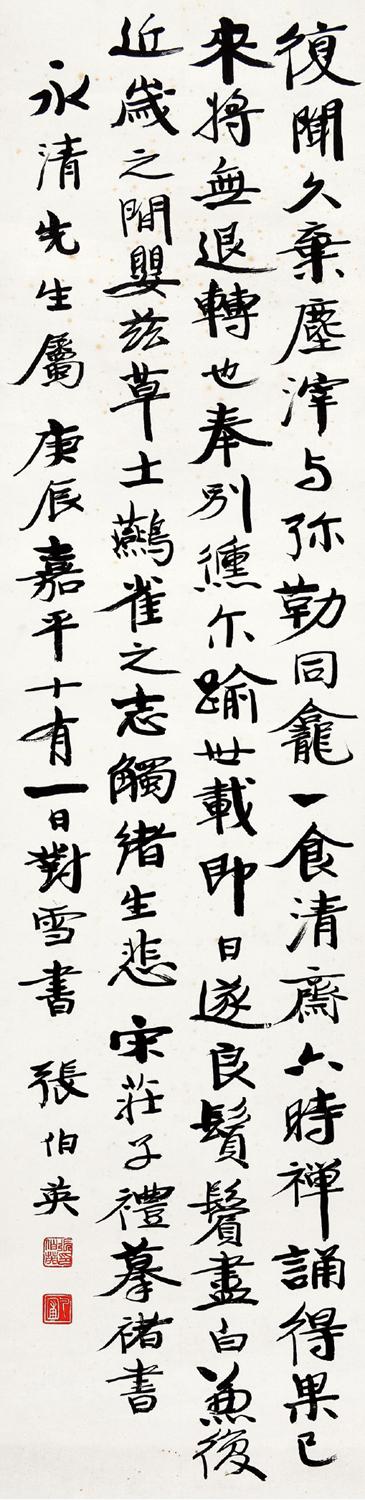 復聞久棄塵滓与弥勒同龕一食清齋六時禅誦得果已
来將無退轉也奉別儵尓踰丗載即日遂良鬚鬢盡白兼復
近歲之間嬰兹草土鷰雀之志觸緒生悲 宋莊子禮摹褚書
永清先生屬 庚辰嘉平十有一日對雪書 張伯英